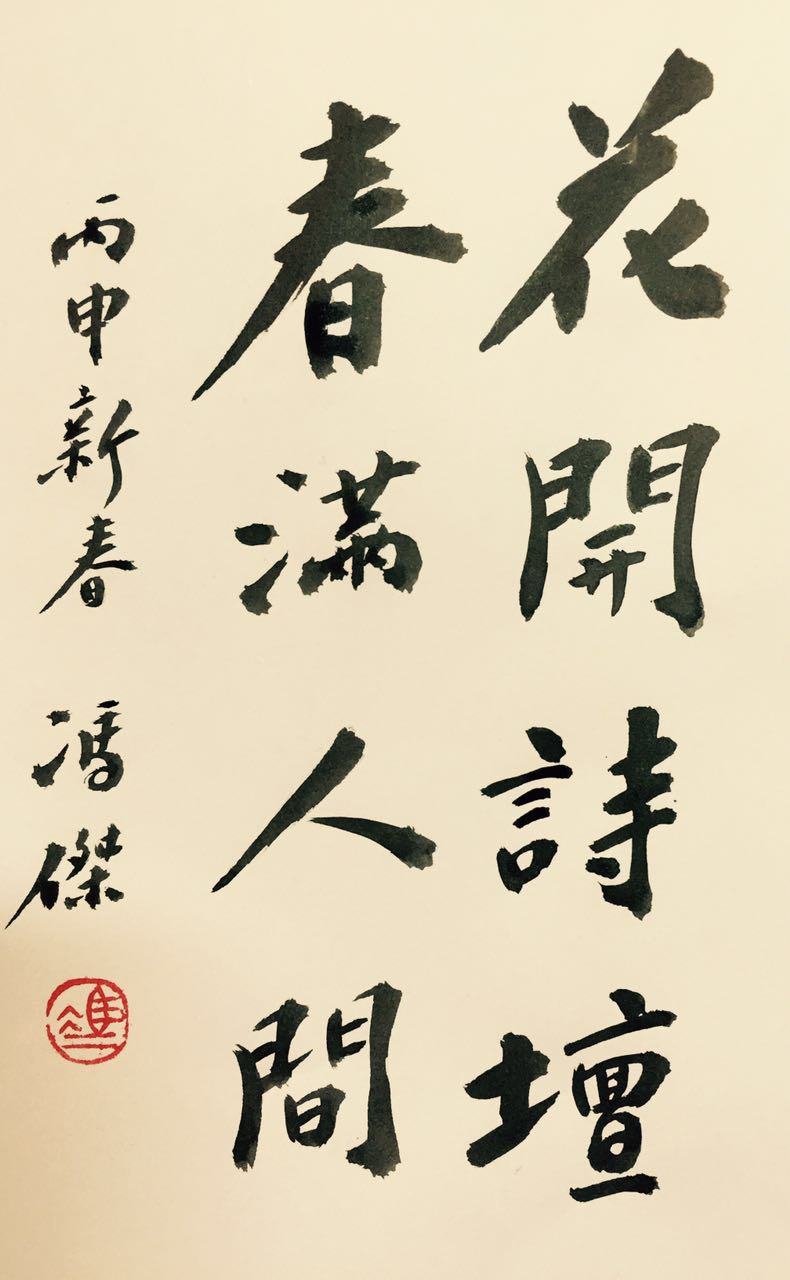 花開詩壇
春滿人間
丙申新春 馮傑